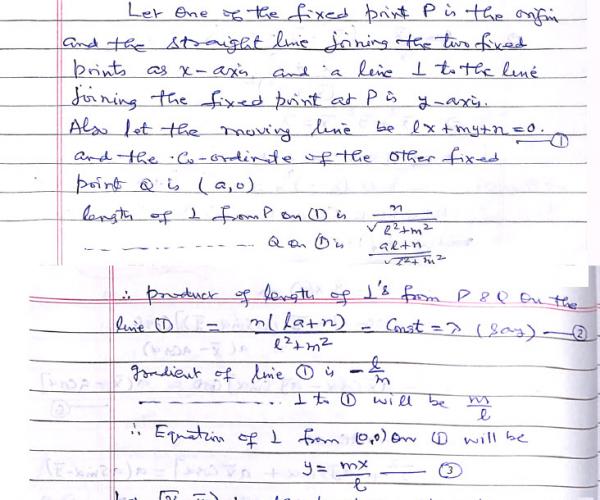 Let one of the fixed point P is the origin
and the straight line joining the two fixed
points as x-axis and a line ⊥ to the line
joining the fixed point at P is y-axis.
Also let the moving line be lx+my+n=0. — ①
and the co-ordinate of the other fixed
point Q is (a,0)
length of ⊥ from P on ① is n/√(l²+m²)
— — — — — Q on ① is (al+n)/√(l²+m²)
∴ product of length of ⊥'s from P & Q on the
line ① = n(la+n)/(l²+m²) = Const = λ (say) — ②
gradient of line ① is -l/m
— — — — — ⊥ to ① will be m/l
∴ Equation of ⊥ from (0,0) on ① will be
y = mx/l — ③